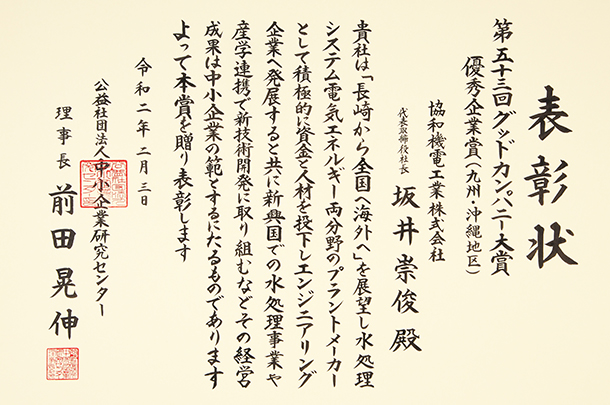 表彰状
第五十三回グッドカンパニー大賞
優秀企業賞(九州・沖縄地区)
協和機電工業株式会社
代表取締役社長 坂井崇俊 殿
貴社は「長崎から全国へ海外へ」を展望し水処理
システム電気エネルギー両分野のプラントメーカー
として積極的に資金と人材を投下しエンジニアリング
企業へ発展すると共に新興国での水処理事業や
産学連携で新技術開発に取り組むなどその経営
成果は中小企業の範とするにたるものであります
よって本賞を贈り表彰します
令和二年二月三日
公益社団法人中小企業研究センター
理事長 前田晃伸